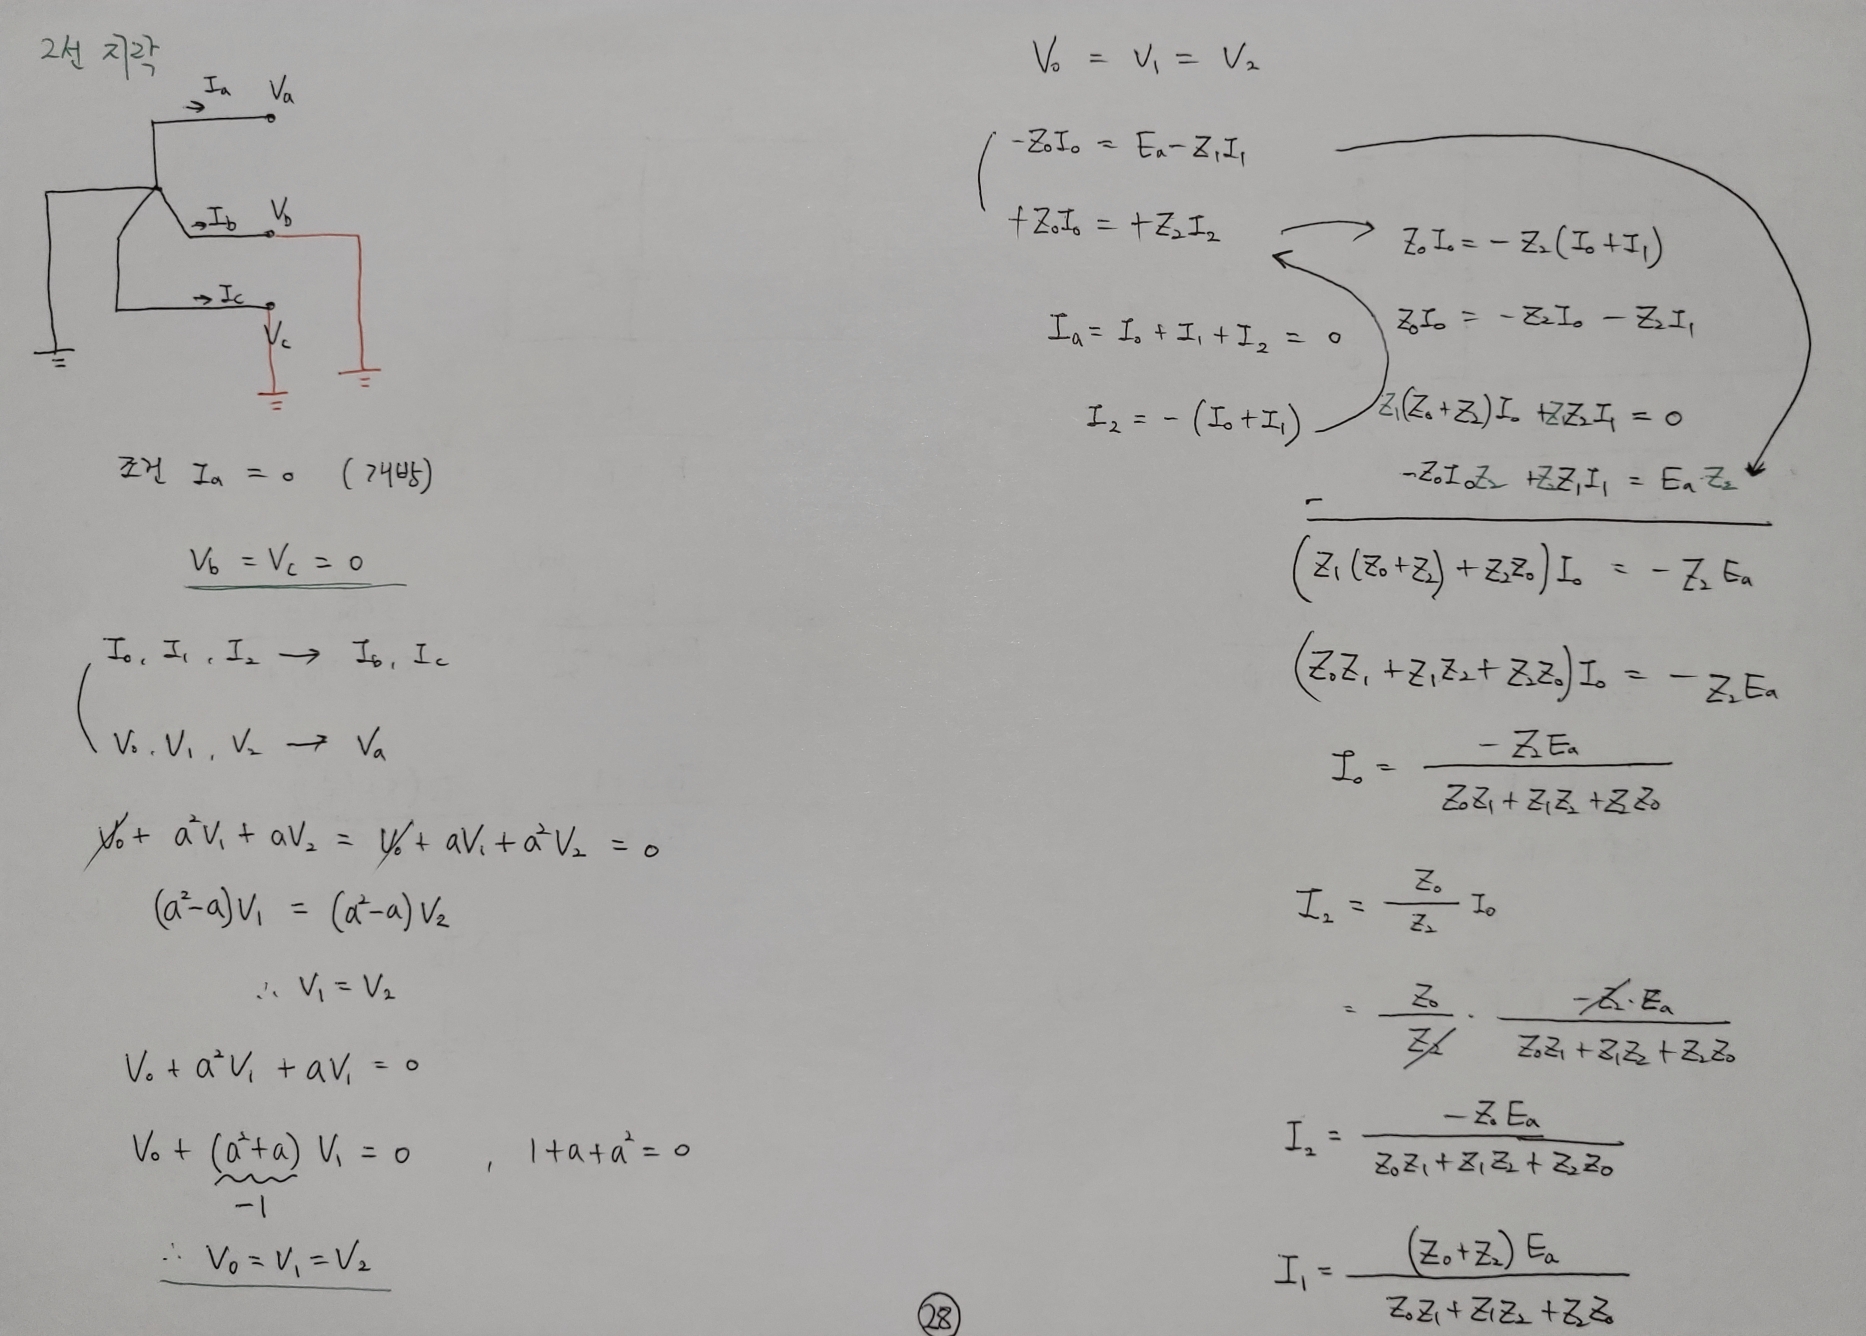 2선 지락
Ia Va
Ib Vb
Ic
Vc
조건 Ia = 0 (개방)
Vb = Vc = 0
I₀, I₁, I₂ → Ib, Ic
V₀, V₁, V₂ → Va
V₀ + a²V₁ + aV₂ = V₀ + aV₁ + a²V₂ = 0
(a²-a)V₁ = (a²-a)V₂
∴ V₁ = V₂
V₀ + a²V₁ + aV₁ = 0
V₀ + (a²+a) V₁ = 0 , 1+a+a² = 0
-1
∴ V₀ = V₁ = V₂
V₀ = V₁ = V₂
-Z₀I₀ = Ea - Z₁I₁
+Z₀I₀ = +Z₂I₂
Ia = I₀ + I₁ + I₂ = 0
I₂ = -(I₀+I₁)
Z₀I₀ = -Z₂(I₀+I₁)
Z₀I₀ = -Z₂I₀ - Z₂I₁
Z₁(Z₀+Z₂)I₀ +Z₁Z₂I₁ = 0
-Z₀I₀Z₂ +Z₂Z₁I₁ = Ea·Z₂
-
(Z₁(Z₀+Z₂)+Z₂Z₀)I₀ = -Z₂Ea
(Z₀Z₁+Z₁Z₂+Z₂Z₀)I₀ = -Z₂Ea
I₀ = -Z₂Ea / Z₀Z₁+Z₁Z₂+Z₂Z₀
I₂ = Z₀ / Z₂ I₀
= Z₀ / Z₂ · -Z₂·Ea / Z₀Z₁+Z₁Z₂+Z₂Z₀
I₂ = -Z₀Ea / Z₀Z₁+Z₁Z₂+Z₂Z₀
I₁ = (Z₀+Z₂)Ea / Z₀Z₁+Z₁Z₂+Z₂Z₀
28